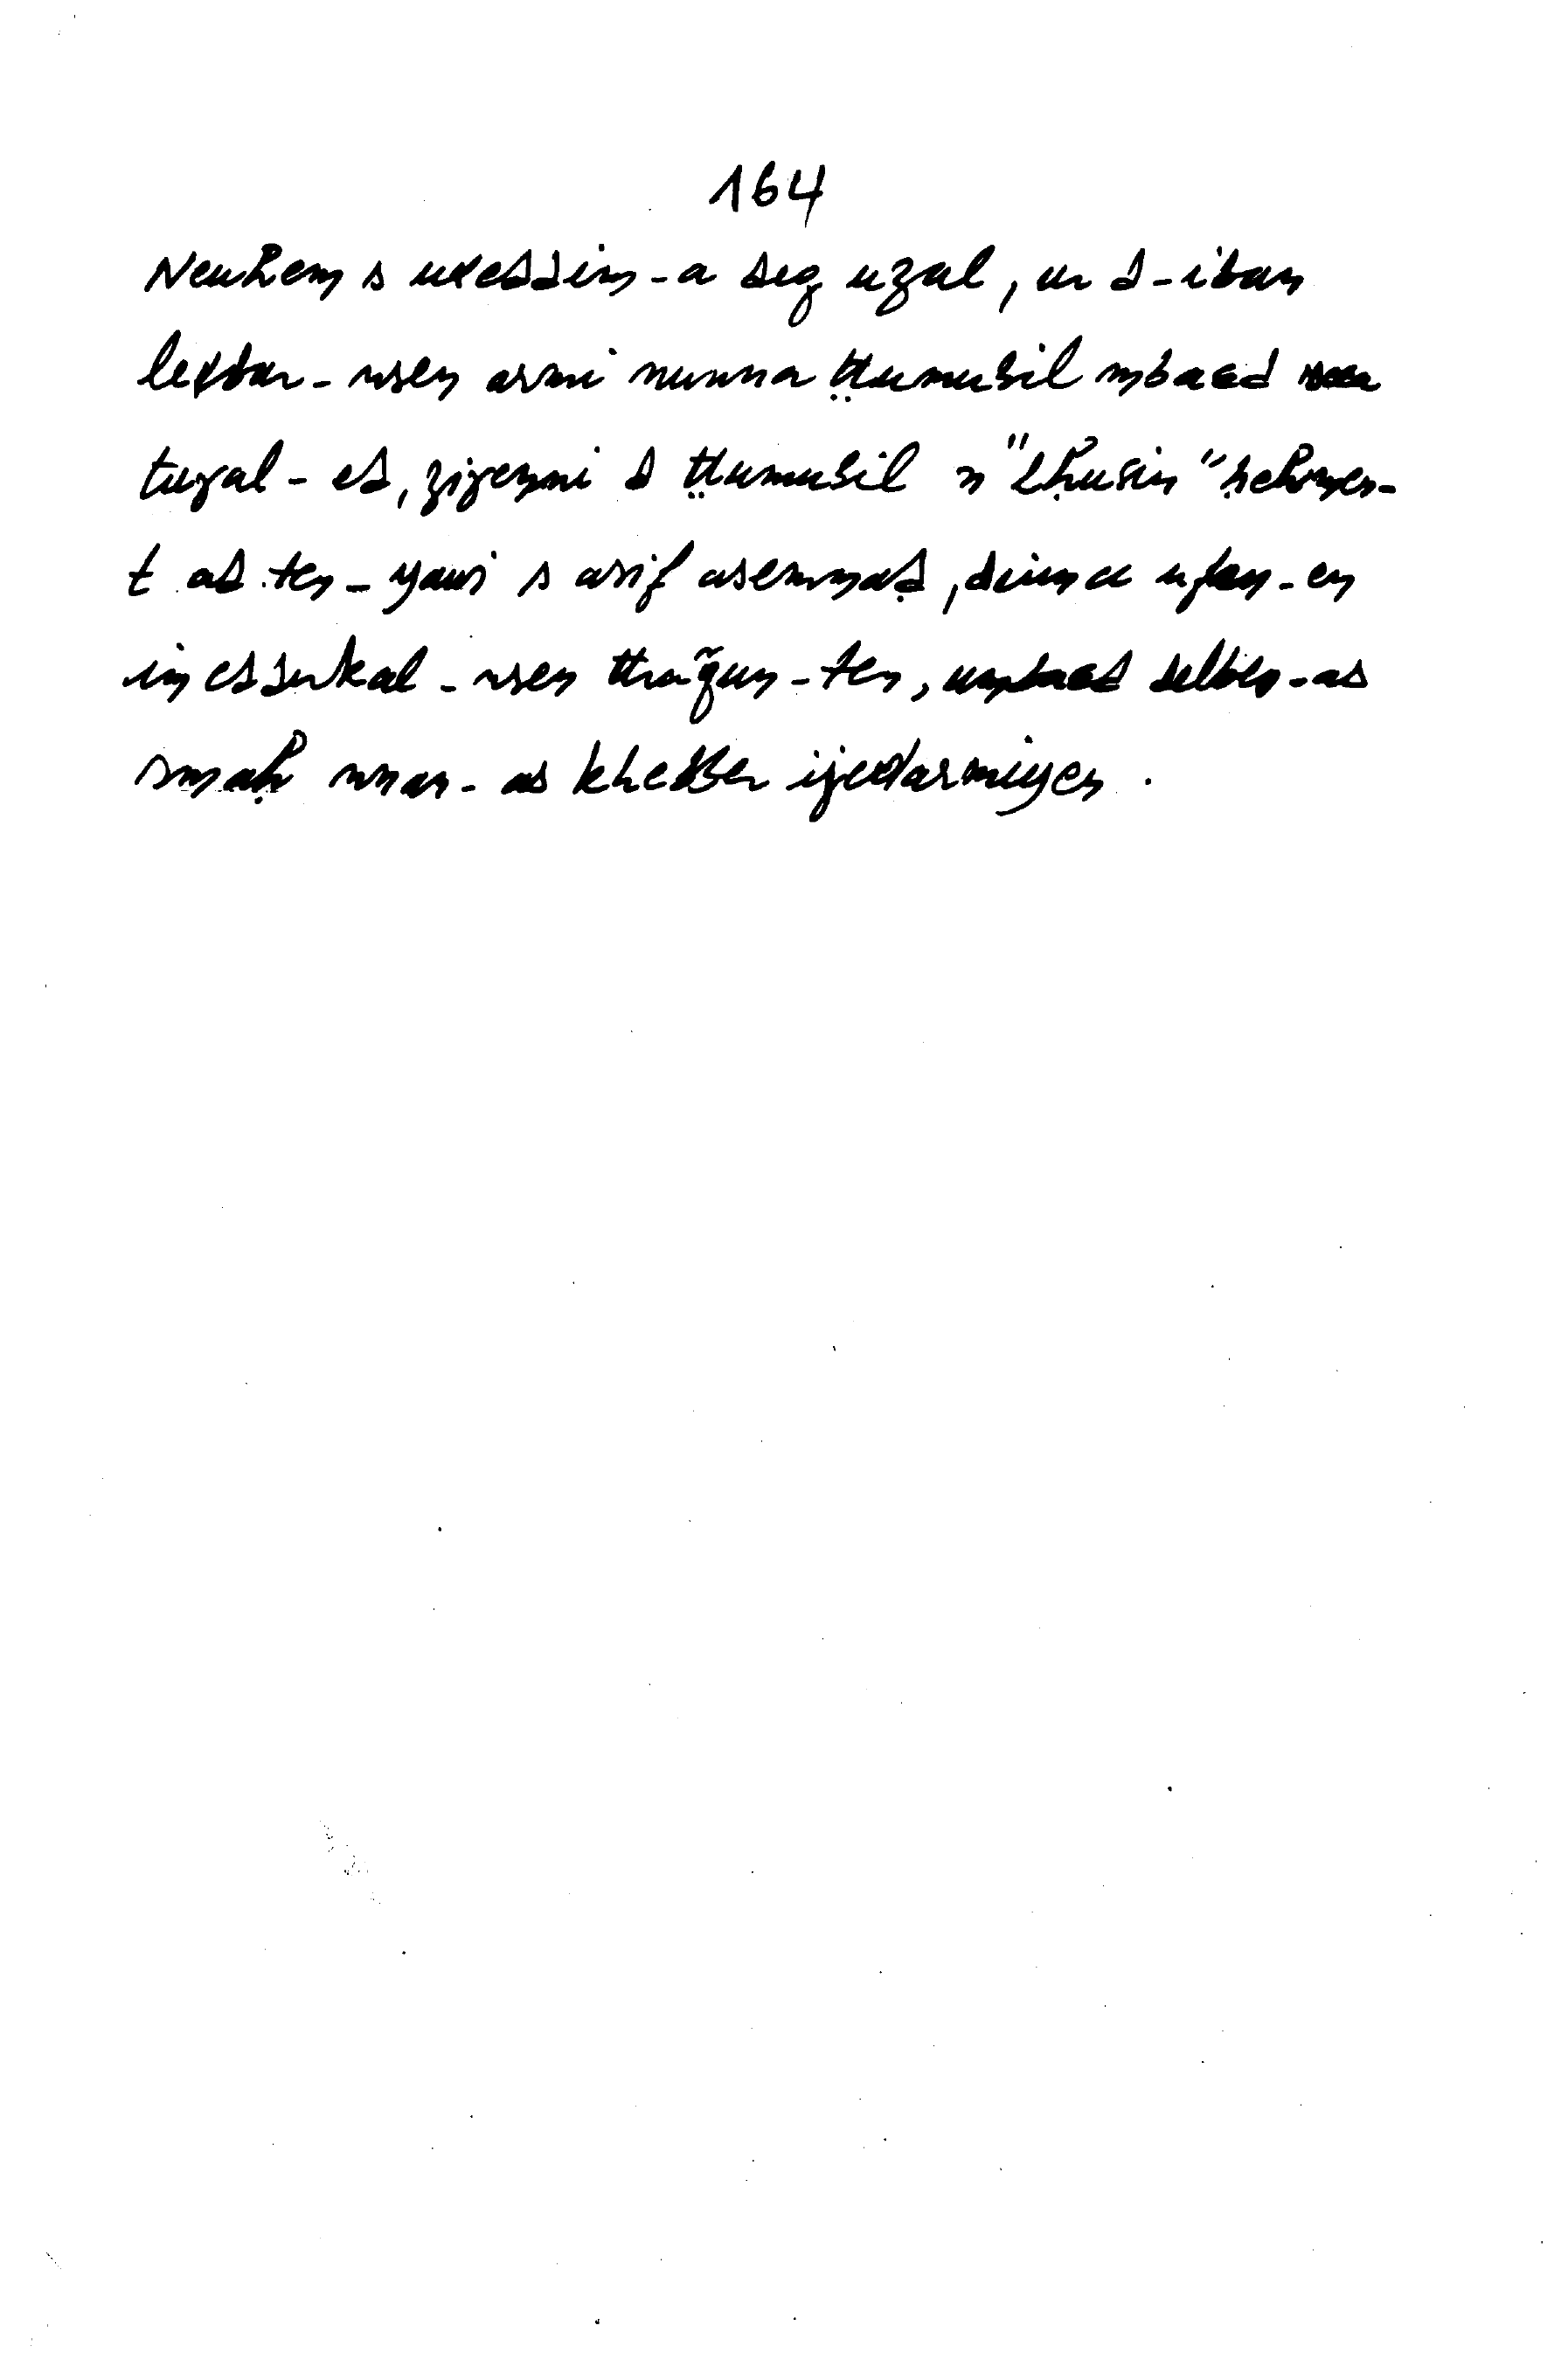 164
Neuhem s uxeddim-a deg uzal, ur d-iban
lexbar-nsen armi nunna ṭṭumubil mbaɛd
tuɣal-ed, ziɣenni d ṭṭumubil n "lḥusin" ḥekmen-
t ad ten-yawi s asif asemmaḍ, dinna ufan-en
imeddukal-nsen ttraǧun-ten, umbaɛd delben-as
smaḥ nnan-as lxedder ijedarmiyen.